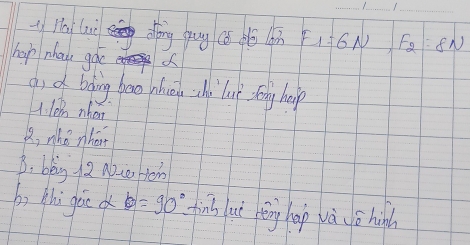 1, Hai lực đồng quy có độ lớn F1 = 6N, F2 = 8N
hợp nhau góc α
a, α bằng bao nhiêu thì lực tổng hợp
1. lớn nhất
2, nhỏ nhất
3, bằng 12 Niu tơn
b, khi góc α = 90° tính lực tổng hợp và vẽ hình